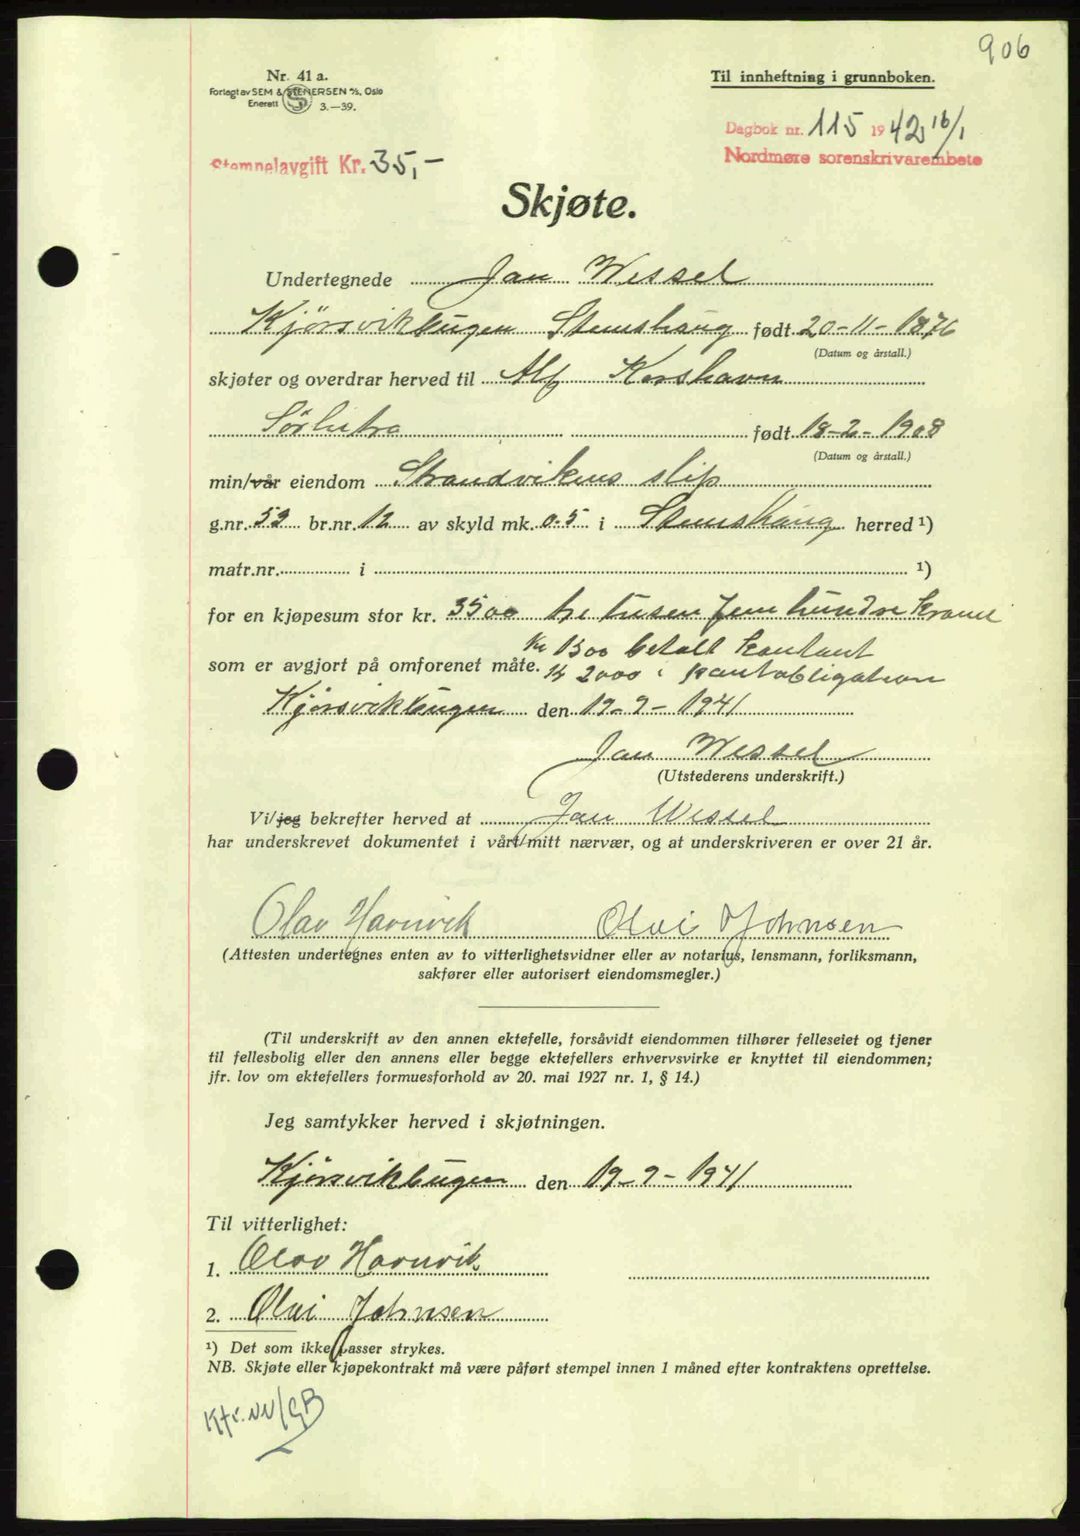 906
Nr. 41 a.
Forlagt av SEM & STENERSEN A/S, Oslo
Enerett 3.-39.
Til innheftning i grunnboken.
Dagbok nr. 115 1942 16/1
Nordmøre sorenskrivarembete
Stempelavgift Kr. 35,-
Skjøte.
Undertegnede Jan Wessel
Kjørsvikbugen Stemshaug født 20-11-1876
(Datum og årstall.)
skjøter og overdrar herved til Alf Korshavn
Sørhitra født 18-2-1908
(Datum og årstall.)
min/vår eiendom Strandvikens slip
g.nr. 53 br.nr. 12 av skyld mk. 0.5 i Stemshaug herred ¹)
matr.nr. i ¹)
for en kjøpesum stor kr. 3500 tre tusen fem hundre kroner
kr 1500 betalt kontant
som er avgjort på omforenet måte. kr 2000 i pantobligation
Kjørsvikbugen den 19-9-1941
Jan Wessel
(Utstederens underskrift.)
Vi/jeg bekrefter herved at Jan Wessel
har underskrevet dokumentet i vårt/mitt nærvær, og at underskriveren er over 21 år.
Olav Havnvik Olai Johnsen
(Attesten undertegnes enten av to vitterlighetsvidner eller av notarius, lensmann, forliksmann,
sakfører eller autorisert eiendomsmegler.)
(Til underskrift av den annen ektefelle, forsåvidt eiendommen tilhører felleseiet og tjener
til fellesbolig eller den annens eller begge ektefellers erhvervsvirke er knyttet til eiendommen;
jfr. lov om ektefellers formuesforhold av 20. mai 1927 nr. 1, § 14.)
Jeg samtykker herved i skjøtningen.
Kjørsvikbugen den 19-9-1941
Til vitterlighet:
1. Olav Havnvik
2. Olai Johnsen
¹) Det som ikke passer strykes.
NB. Skjøte eller kjøpekontrakt må være påført stempel innen 1 måned efter kontraktens oprettelse.